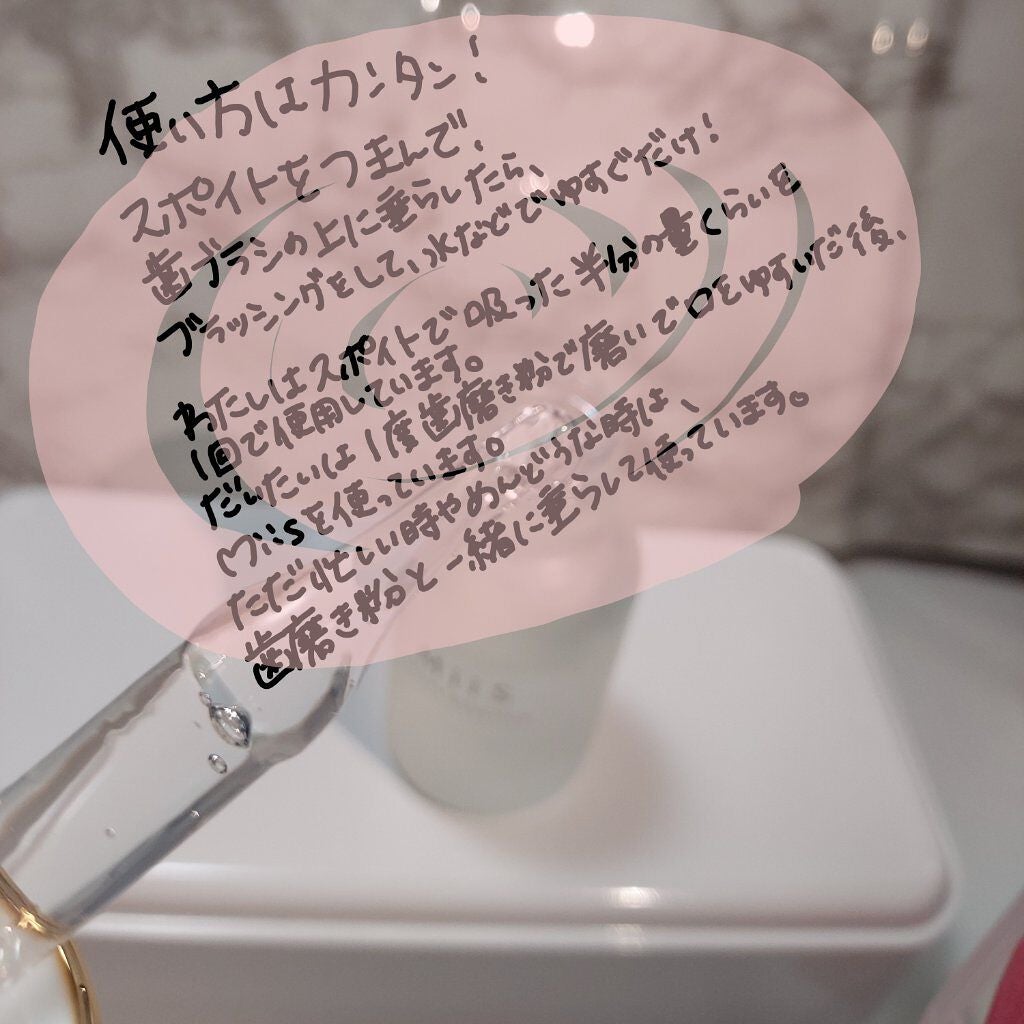 使い方はカンタン!
スポイトをつまんで、
歯ブラシの上に垂らしたら、
ブラッシングをして、水などでゆすぐだけ!
わたしはスポイトで吸った半分の量くらいを
1回で使用しています。
だいたいは1度歯磨き粉で磨いで口をゆすいだ後、
Miisを使っています。
ただ忙しい時やめんどうな時は、
歯磨き粉と一緒に垂らして使っています。
MiiS